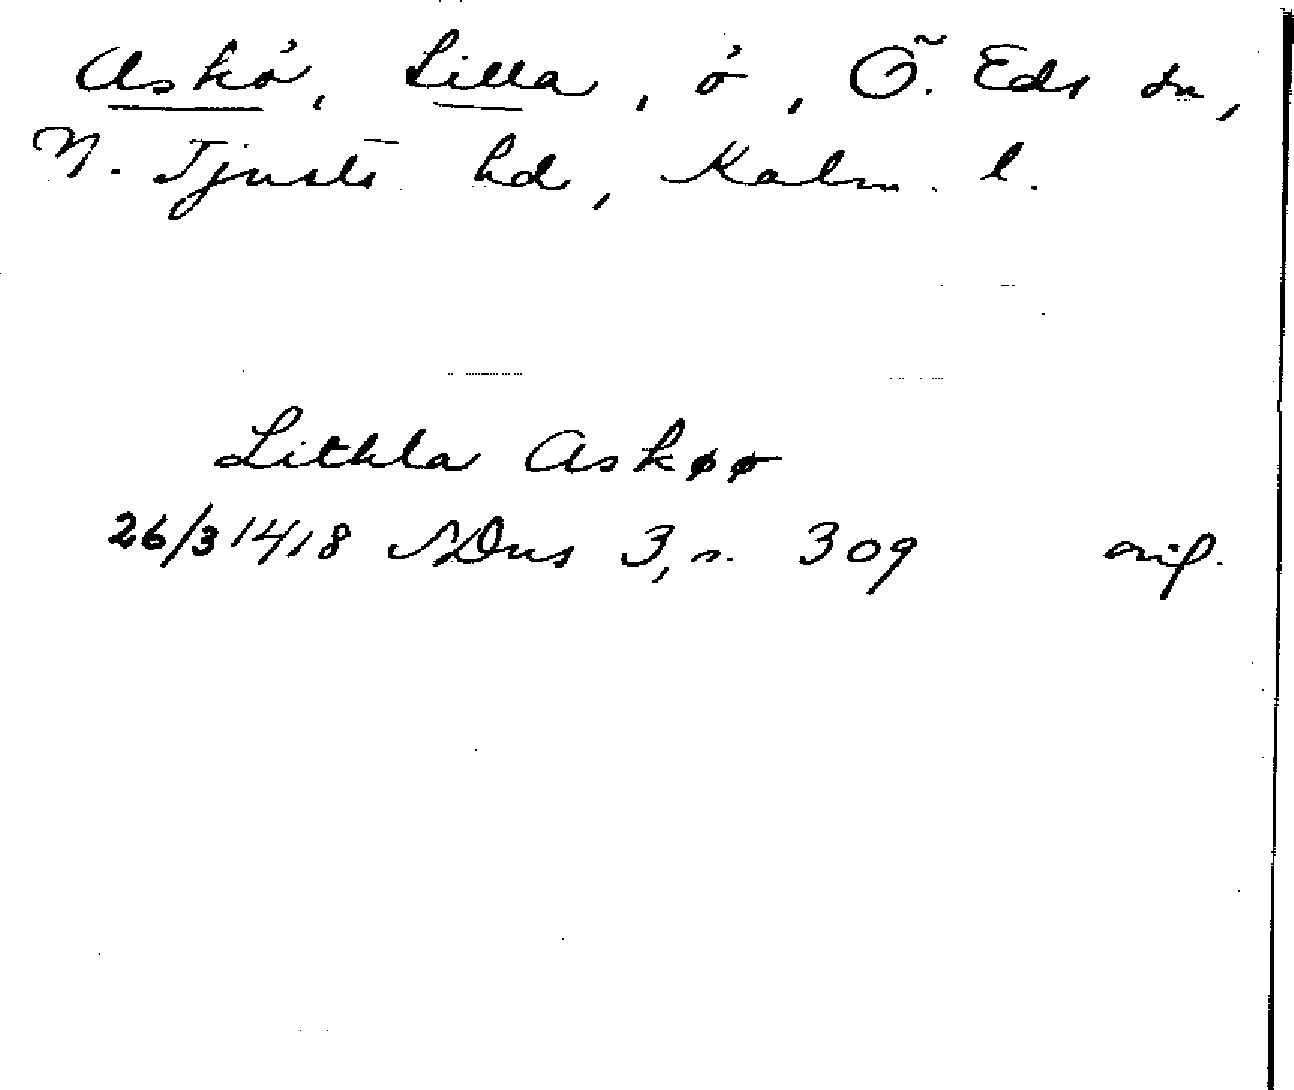 Askö, Lilla, ö, Ö. Eds sn,
N. Tjusts hd, Kalm. l.
Lithla Askøø
26/3 1418 SDns 3, s. 309 orig.